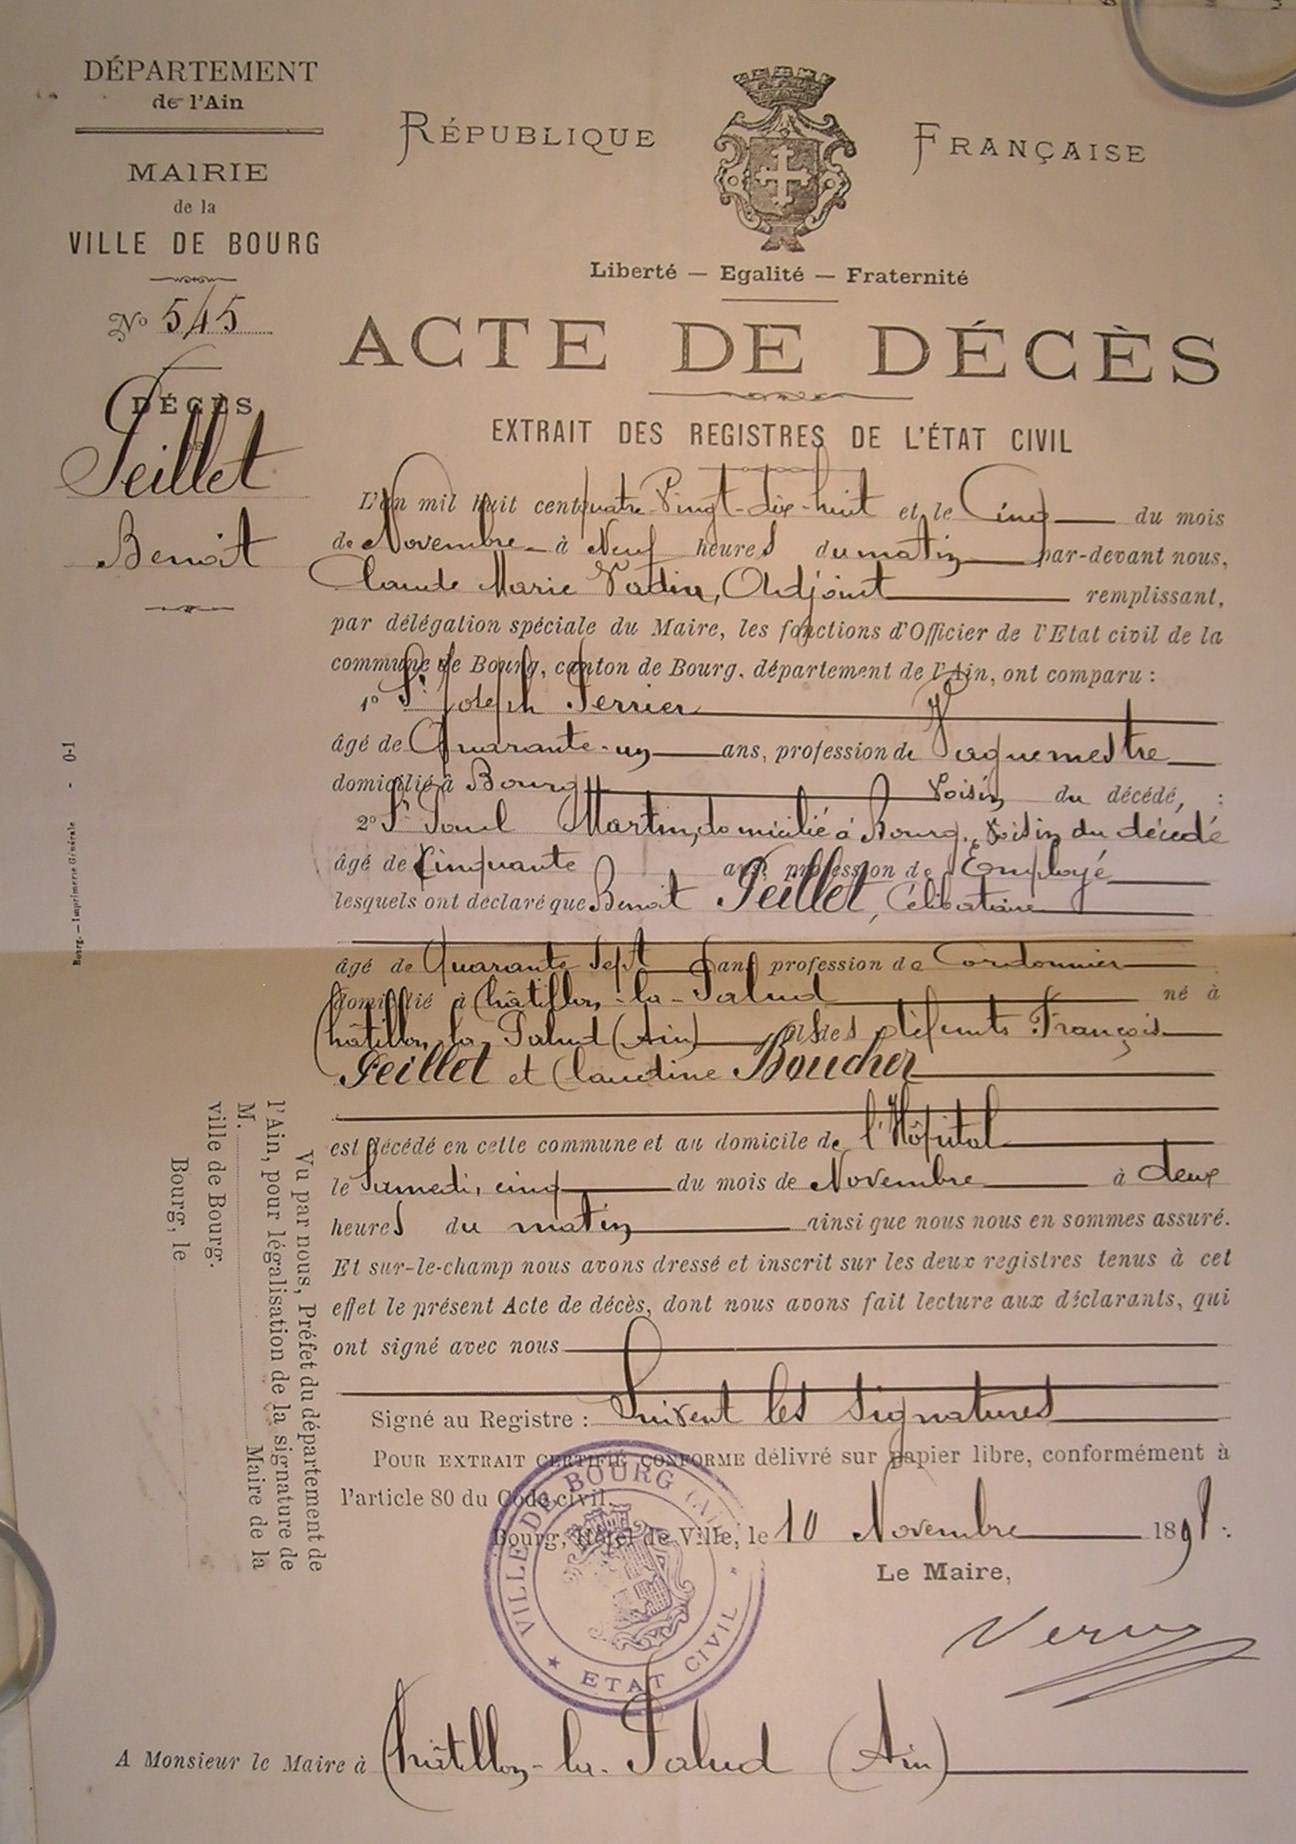 DÉPARTEMENT
de l'Ain
MAIRIE
de la
VILLE DE BOURG
No 545
DÉCÈS
Peillet
Benoit
RÉPUBLIQUE FRANÇAISE
Liberté — Egalité — Fraternité
ACTE DE DÉCÈS
EXTRAIT DES REGISTRES DE L'ÉTAT CIVIL
L'an mil huit cent quatre Vingt-dix-huit et le Cinq du mois
de Novembre à Neuf heures du matin par-devant nous,
Claude Marie Vadin, Adjoint remplissant,
par délégation spéciale du Maire, les fonctions d'Officier de l'Etat civil de la
commune de Bourg, canton de Bourg, département de l'Ain, ont comparu :
1o Sr Joseph Perrier
âgé de Quarante-un ans, profession de Vaguemestre
domicilié à Bourg Voisin du décédé, :
2o Sr Paul Martin, domicilié à Bourg, Voisin du décédé
âgé de Cinquante ans, profession de Employé
lesquels ont déclaré que Benoit Peillet, Célibataire
âgé de Quarante Sept ans profession de Cordonnier
domicilié à Châtillon-la-Palud né à
Châtillon la Palud (Ain) fils des défunts François
Peillet et Claudine Boucher
est décédé en cette commune et au domicile de l'Hôpital
le Samedi, cinq du mois de Novembre à deux
heures du matin ainsi que nous nous en sommes assuré.
Et sur-le-champ nous avons dressé et inscrit sur les deux registres tenus à cet
effet le présent Acte de décès, dont nous avons fait lecture aux déclarants, qui
ont signé avec nous
Signé au Registre : Suivent les signatures
POUR EXTRAIT CERTIFIÉ CONFORME délivré sur papier libre, conformément à
l'article 80 du Code civil.
Bourg, Hôtel de Ville, le 10 Novembre 1898.
Le Maire,
VILLE DE BOURG (AIN)
★ ETAT CIVIL ★
A Monsieur le Maire à Châtillon-la-Palud (Ain)
Bourg. — Imprimerie Générale - 0-1
Vu par nous, Préfet du département de
l'Ain, pour légalisation de la signature de
M. Maire de la
ville de Bourg.
Bourg, le